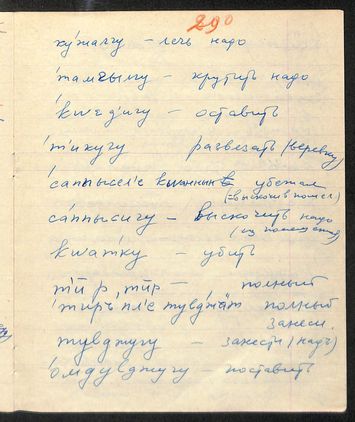 290
ку́жалгу – лечь надо
та́мгылгу – крутить надо
кwе́д'игу – оставить
т'и́кугу развезать (веревку)
са́ппысел'е убежал
(=выскочив в помещ
са́пписигу – выскочить надо
(из помещения)
кwа́тку – убить
тӣр, тӣр – полный
тиръ пл'е тувд'я́т полный
занеси.
тувджугу – занести (надъ)
о́мдулджугу – поставить